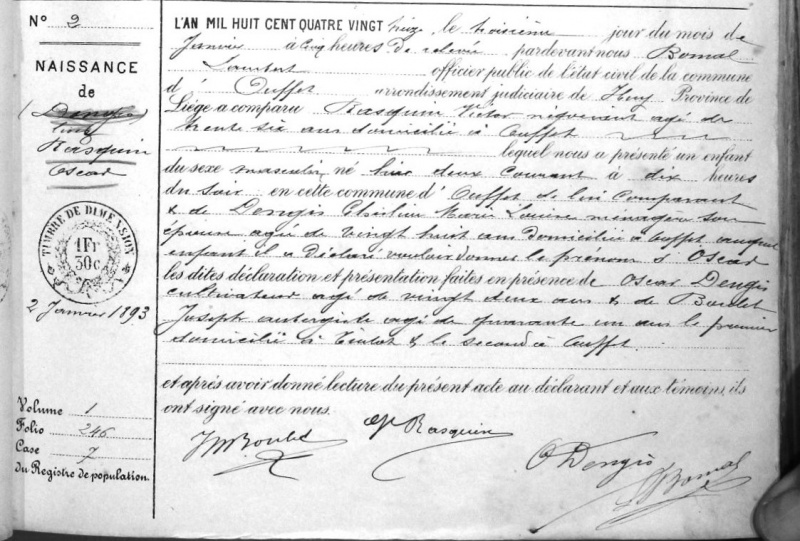 N° 2
NAISSANCE
de
Rasquin
Oscar
TIMBRE DE DIMENSION
1 Fr
30c
2 Janvier 1893
Volume 1
Folio 246
Case 7
du Registre de population.
L'AN MIL HUIT CENT QUATRE VINGT treize, le troisième jour du mois de
Janvier à cinq heures de relevée, pardevant nous Bomal
Lambert officier public de l'état civil de la commune
d' Ouffet arrondissement judiciaire de Huy Province de
Liége a comparu Rasquin Victor négociant agé de
trente six ans domicilié à Ouffet
lequel nous a présenté un enfant
du sexe masculin né hier deux courant à dix heures
du soir en cette commune d' Ouffet de lui comparant
& de Dengis Marie Louise ménagère son
épouse agée de vingt huit ans domiciliée à Ouffet auquel
enfant il a déclaré vouloir donner le prénom d' Oscar
les dites déclaration et présentation faites en présence de Oscar Dengis
cultivateur agé de vingt deux ans & de Boulet
Joseph aubergiste agé de quarante un ans le premier
domicilié à & le second à Ouffet.
et aprés avoir donné lecture du présent acte au déclarant et aux témoins, ils
ont signé avec nous.
Boulet Rasquin
O Dengis
Bomal